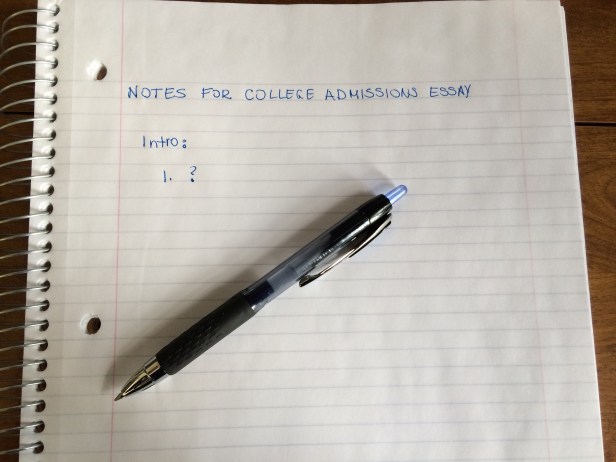 NOTES FOR COLLEGE ADMISSIONS ESSAY
Intro:
1. ?